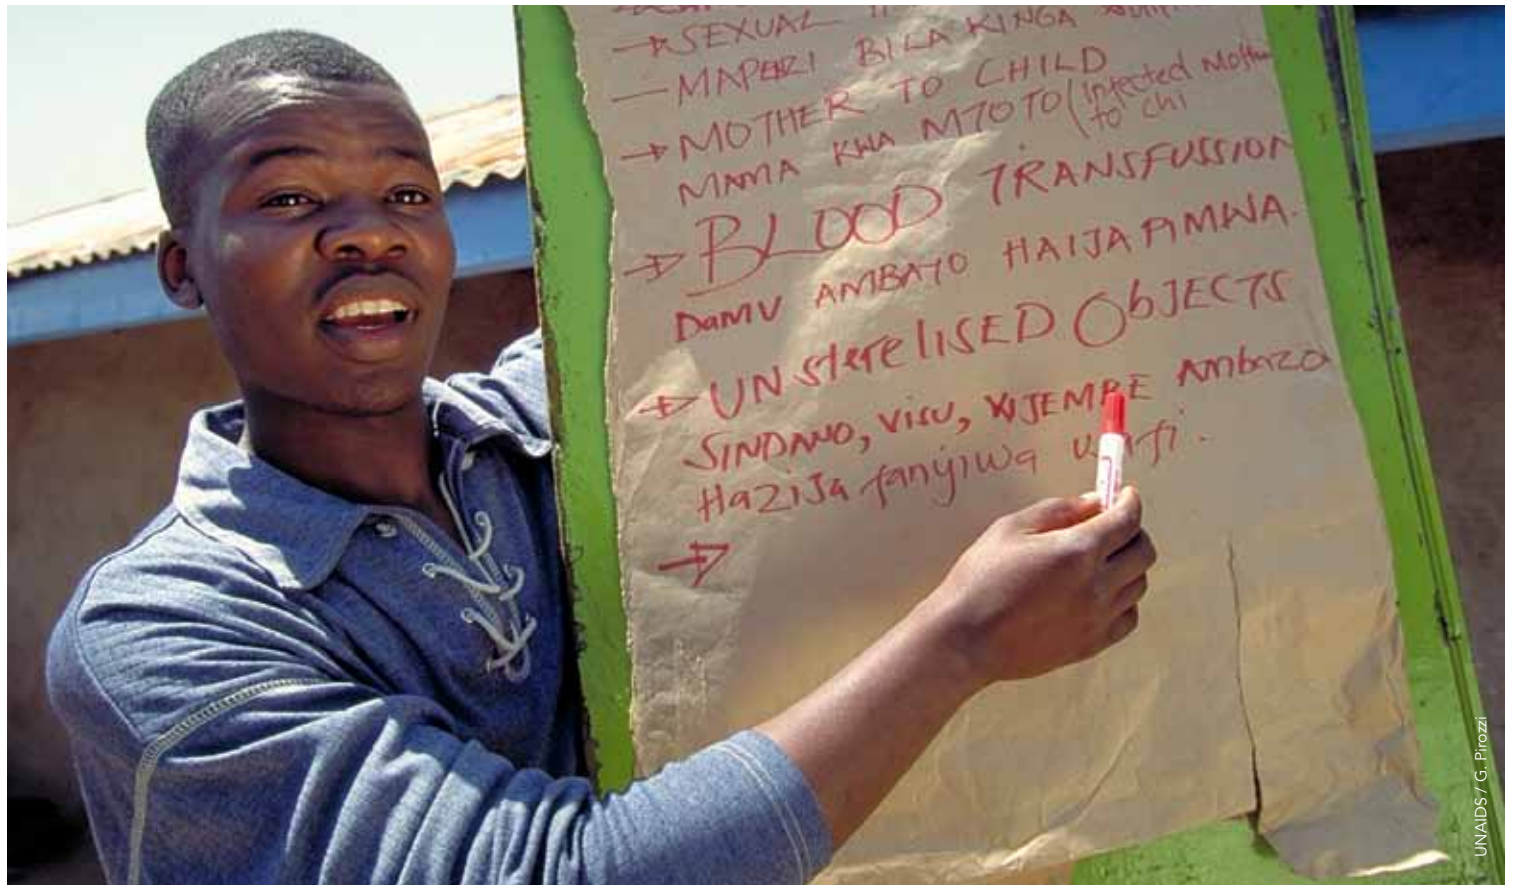 → SEXUAL
— MAPENZI BILA KINGA
→ MOTHER TO CHILD
MAMA KWA MTOTO (Infected Mother
to chi
→ BLOOD TRANSFUSSION
DaMU AMBAYO HAIJAPIMWA.
→ UNstereliSED ObJECTS
SINDANO, ViSU, VIJEMBE AMbazo
HaziJa fanyiwa
→
UNAIDS / G. Pirozzi